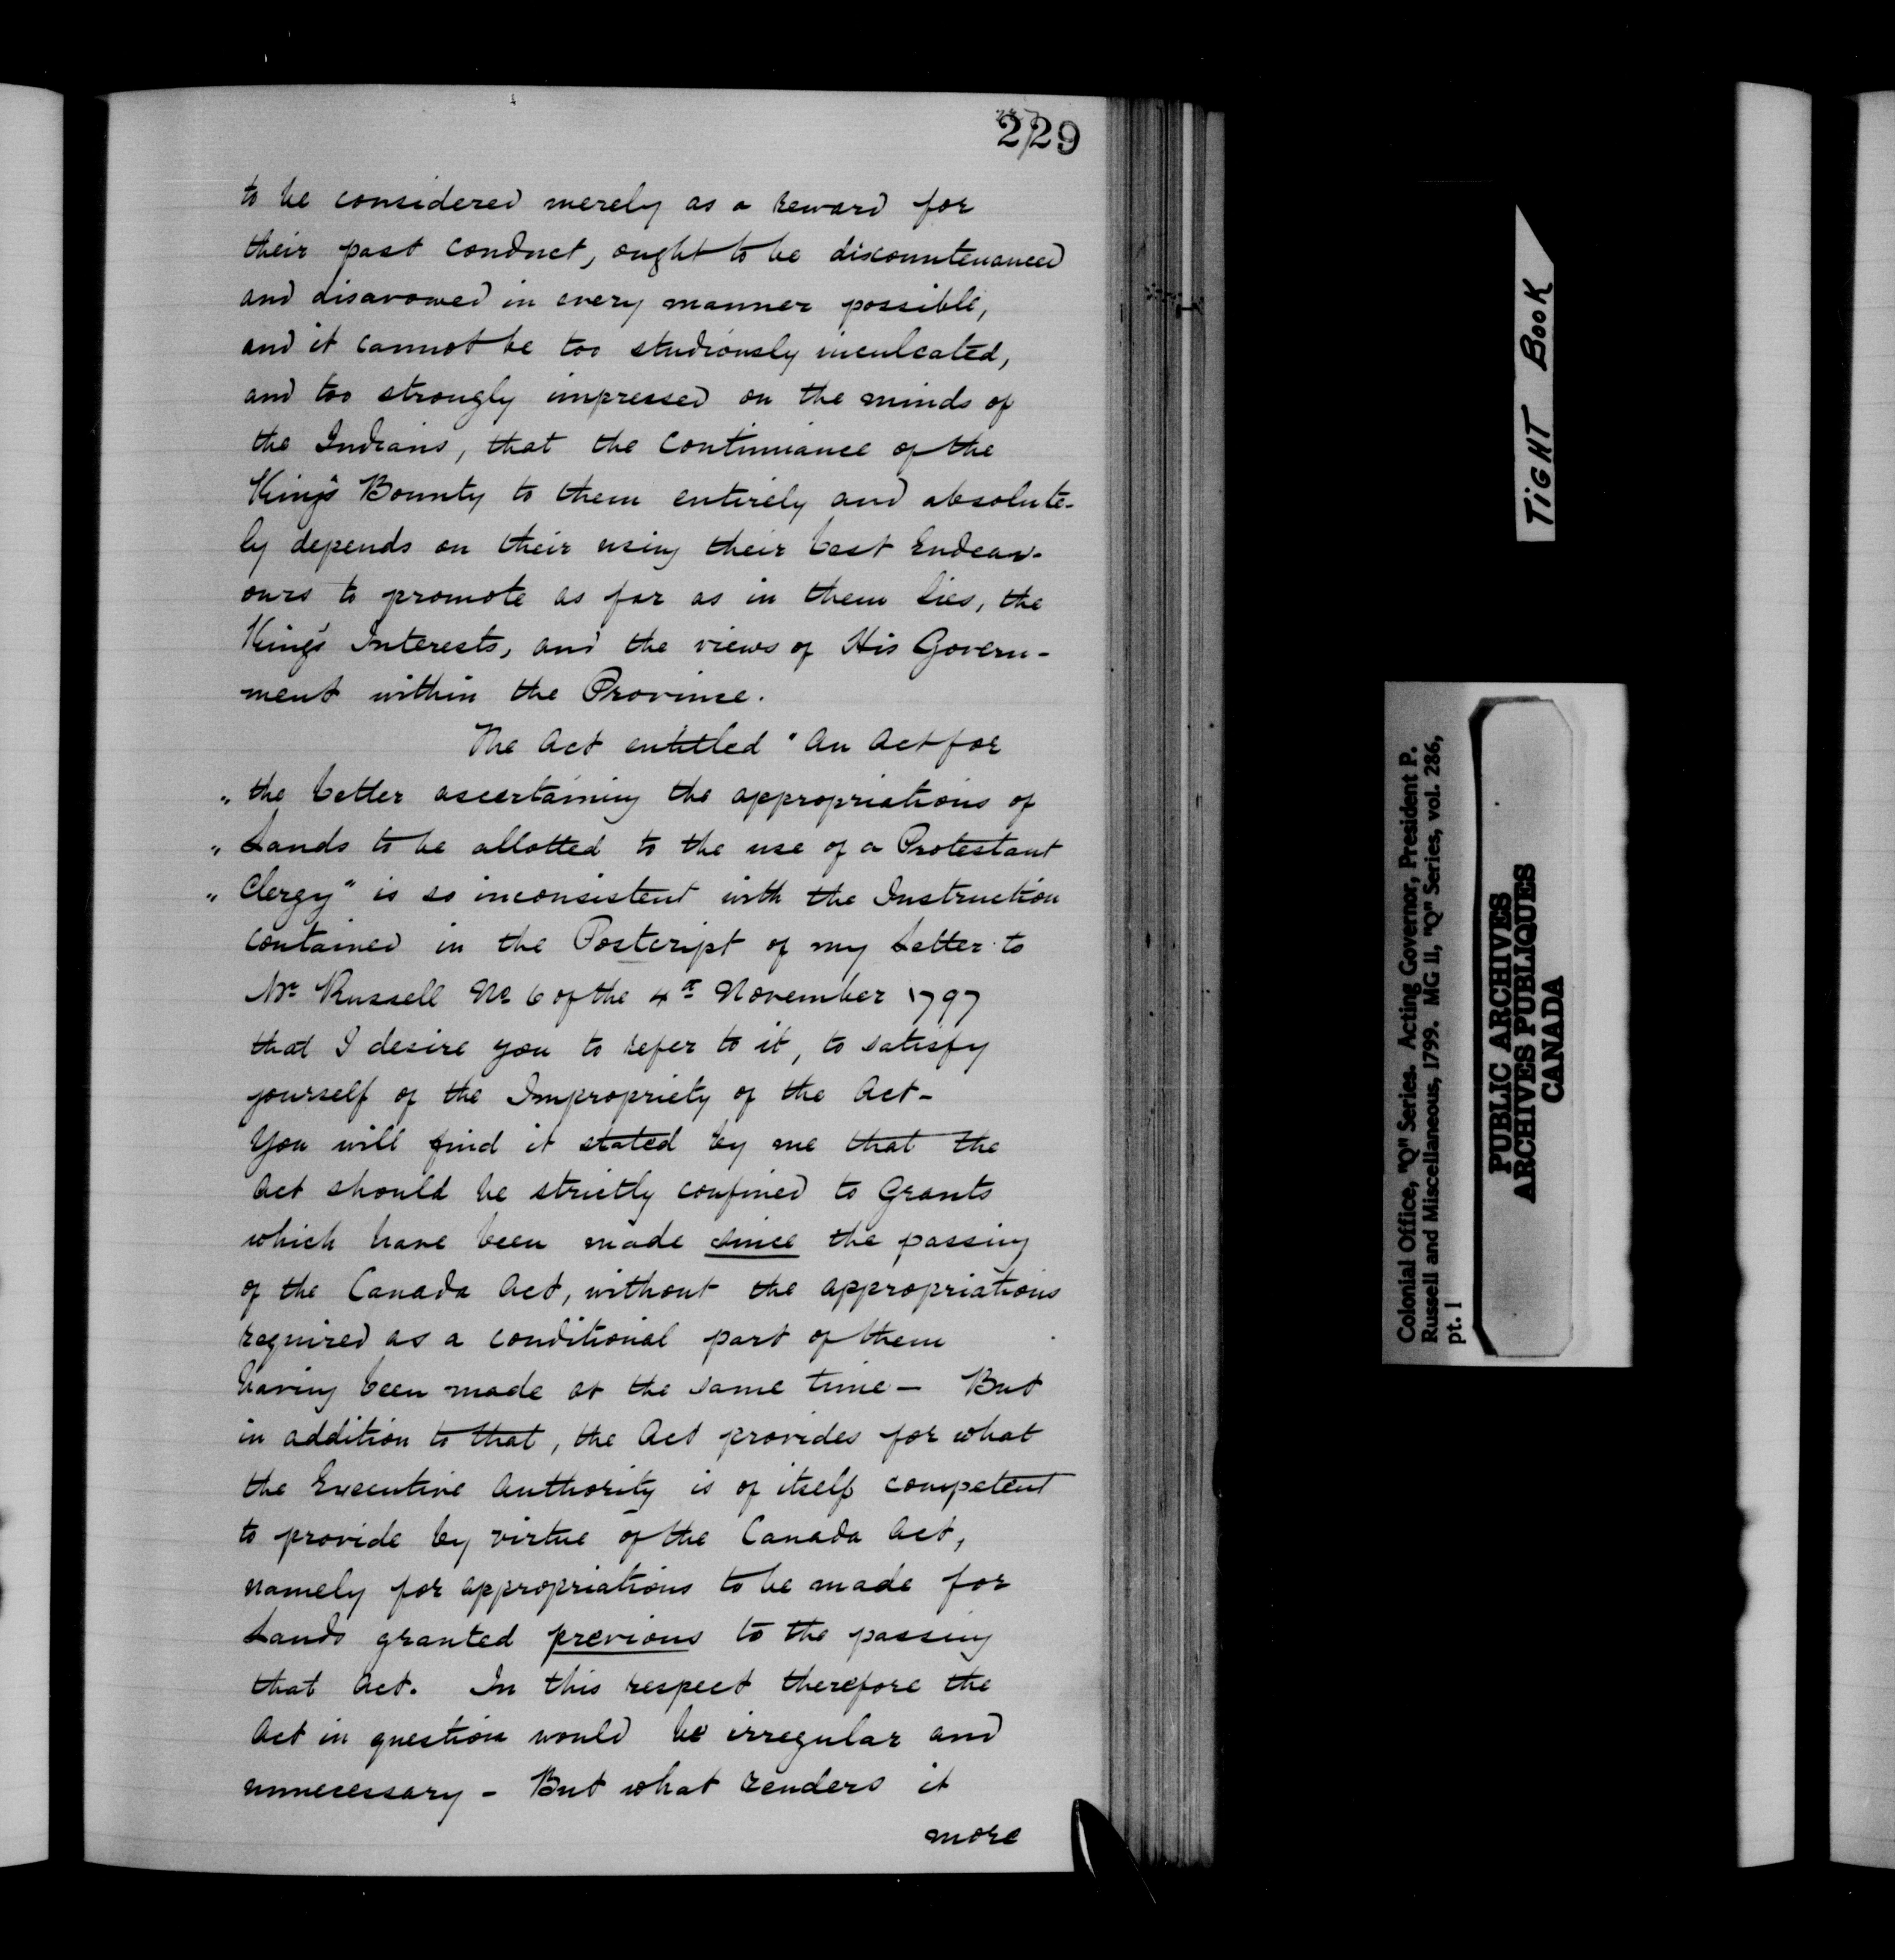 229
to be considered merely as a reward for
their past conduct, ought to be discountenanced
and disavowed in every manner possible,
and it cannot be too studiously inculcated,
and too strongly impressed on the minds of
the Indians, that the Continuance of the
King's Bounty to them entirely and absolute-
ly depends on their using their best Endeav-
ours to promote as far as in them lies, the
King's Interests, and the views of His Govern-
ment within the Province.
The Act entitled "An Act for
"the better ascertaining the appropriations of
"Lands to be allotted to the use of a Protestant
"Clergy" is so inconsistent with the Instruction
contained in the Postcript of my Letter to
Mr Russell No 6 of the 4th November 1797
that I desire you to refer to it, to satisfy
yourself of the Impropriety of the Act-
You will find it stated by me that the
Act should be strictly confined to Grants
which have been made since the passing
of the Canada Act, without the appropriations
required as a conditional part of them
having been made at the same time— But
in addition to that, the Act provides for what
the Executive Authority is of itself competent
to provide by virtue of the Canada Act,
namely for appropriations to be made for
Lands granted previous to the passing
that Act. In this respect therefore the
Act in question would be irregular and
unnecessary - But what renders it
more
TIGHT BOOK
Colonial Office, "Q" Series. Acting Governor, President P.
Russell and Miscellaneous, 1799. MG 11, "Q" Series, vol. 286,
pt. 1
PUBLIC ARCHIVES
ARCHIVES PUBLIQUES
CANADA